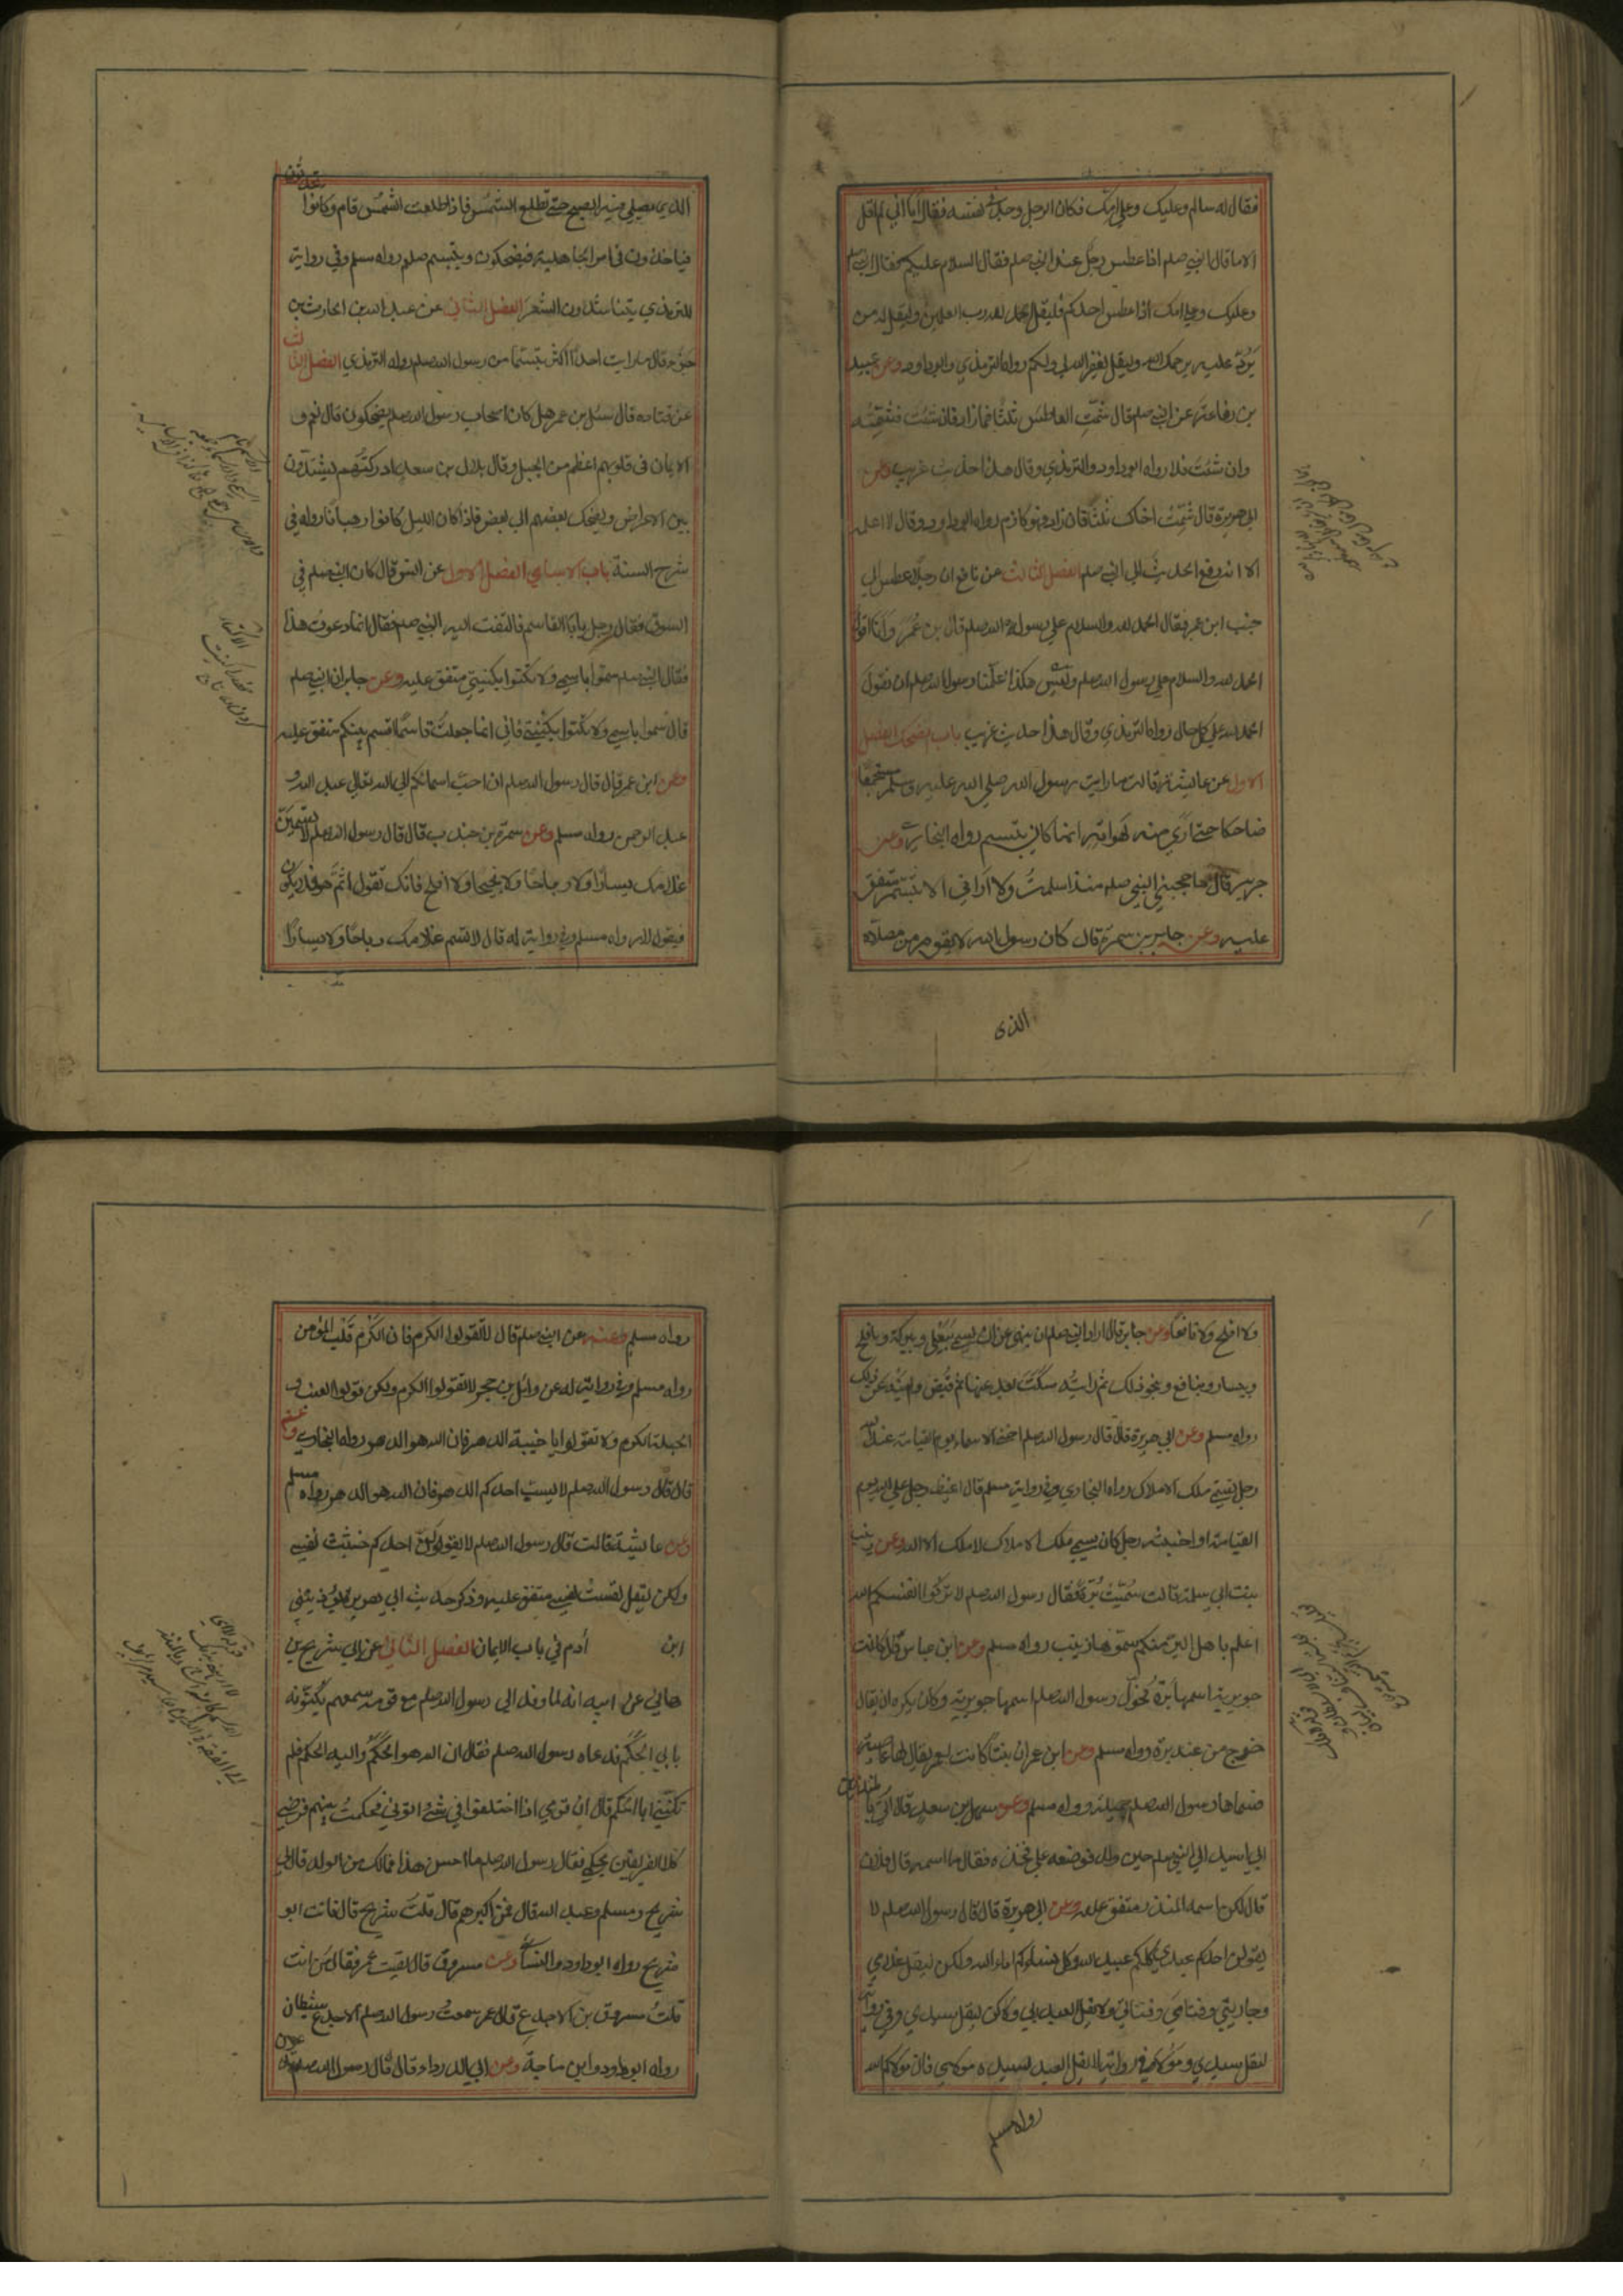 فقال له سالم وعليك وعلى امك فكان الرجل وجد في نفسه فقال اما اني لم اقل
الا ما قال النبي صلم اذا عطس رجل عند النبي صلم فقال السلام عليكم فقال النبي صلم
وعليك وعلى امك اذا عطس احدكم فليقل الحمد لله رب العلمين وليقل له من
يَرُدّ عليه يرحمك الله وليقل يغفر الله لي ولكم رواه الترمذي وابوداود وعن عبيد
بن رفاعة عن النبي صلم قال شمّت العاطس ثلثًا فما زاد فان شئت فشمّته
وان شئت فلا رواه ابوداود والترمذي وقال هذا حديث غريب وعن
ابي هريرة قال شمّت اخاك ثلثًا فان زاد فهو زكام رواه ابوداود وقال لا اعلمه
الا انه رفع الحديث الى النبي صلم الفصل الثالث عن نافع ان رجلا عطس الى
جنب ابن عمر فقال الحمد لله والسلام على رسول الله صلم قال بن عمر وانا اقول
الحمد لله والسلام على رسول الله صلم وليس هكذا علّمنا رسول الله صلم ان نقول
الحمد لله على كل حال رواه الترمذي وقال هذا حديث غريب باب الضحك الفصل
الاول عن عائشة قالت ما رايت رسول الله صلى الله عليه وسلم مستجمعًا
ضاحكا حتى ارى منه لهواته انما كان يتبسم رواه البخاري وعن
جرير قال ما حجبني النبي صلم منذ اسلمت ولا آراني الا تبسّم متفق
عليه وعن جابر بن سمرة قال كان رسول الله لا يقوم من مصلاه
الذى
الذي يصلي فيه الصبح حتى تطلع الشمس فاذا طلعت الشمس قام وكانوا يتحدثون
فياخذون في امر الجاهلية فيضحكون ويتبسم صلم رواه مسلم وفي رواية
للترمذي يتناشدون الشعر الفصل الثاني عن عبد الله بن الحارث بن
جزء قال ما رايت احدًا اكثر تبسّمًا من رسول الله صلم رواه الترمذي الفصل الثالث
عن قتادة قال سئل بن عمر هل كان اصحاب رسول الله صلم يضحكون قال نعم و
الايمان في قلوبهم اعظم من الجبل وقال بلال بن سعد ادركتُهم يشتدّون
بين الاغراض ويضحك بعضهم الى بعض فاذا كان الليل كانوا رهبانا رواه في
شرح السنة باب الاسامي الفصل الاول عن انس قال كان النبي صلم في
السوق فقال رجل يا ابا القاسم فالتفت اليه النبي صلم فقال انما دعوت هذا
فقال النبي صلم سمّوا باسمي ولا تكنّوا بكنيتي متفق عليه وعن جابر ان النبي صلم
قال سموا باسمي ولا تكنوا بكنيتي فاني انما جعلت قاسمًا اقسم بينكم متفق عليه
وعن ابن عمر قال قال رسول الله صلم ان احب اسمائكم الى الله تعالى عبد الله و
عبد الرحمن رواه مسلم وعن سمرة بن جندب قال قال رسول الله صلم لا تسمين
غلامك يسارًا ولا رباحًا ولا نجيحا ولا افلح فانك تقول اثمّ هو فلا يكون
فيقول لا رواه مسلم وفي رواية له قال لا تسم غلامك رباحًا ولا يسارًا
ولا افلح ولا نافعًا وعن جابر قال اراد النبي صلم ان ينهى عن ان يسمى بيعلى وببركة وبافلح
وبيسار وبنافع وبنحو ذلك ثم رايته سكت بعد عنها ثم قبض ولم ينه عن ذلك
رواه مسلم وعن ابي هريرة قال قال رسول الله صلم اخنى الاسماء يوم القيامة عند الله
رجل يسمى ملك الاملاك رواه البخاري وفي رواية مسلم قال اغيظ رجل على الله يوم
القيامة واخبثه رجل كان يسمى ملك الاملاك لا ملك الا الله وعن زينب
بنت ابي سلمة قالت سُمّيت بُرّة فقال رسول الله صلم لا تزكوا انفسكم الله
اعلم باهل البرّ منكم سمّوها زينب رواه مسلم وعن ابن عباس قال كانت
جويرية اسمها برّة فحوّل رسول الله صلم اسمها جويرية وكان يكره ان يقال
خرج من عند برة رواه مسلم وعن ابن عمر ان بنتًا كانت لعمر يقال لها عاصية
فسماها رسول الله صلم جميلة رواه مسلم وعن سهل بن سعد قال اُتي بالمنذر بن
ابي اسيد الى النبي صلم حين ولد فوضعه على فخذه فقال ما اسمه قال فلان
قال لكن اسمه المنذر متفق عليه وعن ابي هريرة قال قال رسول الله صلم لا
يقولن احدكم عبدي كلكم عبيد الله وكل نساءكم اماء الله ولكن ليقل غلامي
وجاريتي وفتاي وفتاتي ولا يقل العبد ربي ولكن ليقل سيدي وفي رواية
ليقل سيدي ومولاي وفي رواية لا يقل العبد لسيده مولاي فان مولاكم الله
رواه مسلم
رواه مسلم وعنه عن النبي صلم قال لا تقولوا الكرم فان الكَرْم قلب المؤمن
رواه مسلم وفي رواية له عن وائل بن حجر لا تقولوا الكرم ولكن قولوا العنب و
الحبلة الكرم ولا تقولوا يا خيبة الدهر فان الله هو الدهر رواه البخاري وعنه
قال قال رسول الله صلم لا يسب احدكم الدهر فان الله هو الدهر رواه مسلم
وعن عايشة قالت قال رسول الله صلم لا يقولن احدكم خبثت نفسي
ولكن ليقل لقست نفسي متفق عليه وذكر حديث ابي هريرة يؤذيني
ابن آدم في باب الايمان الفصل الثاني عن ابي شريح بن
هاني عن ابيه انه لما وفد الى رسول الله صلم مع قومه سمعهم يكنّونه
بابي الحَكَم فدعاه رسول الله صلم فقال ان الله هو الحكم واليه الحكم فلم
تكنّى ابا الحكم قال ان قومي اذا اختلفوا في شئ اتوني فحكمت بينهم فرضي
كلا الفريقين بحكمي فقال رسول الله صلم ما احسن هذا فمالك من الولد قال لي
شريح ومسلم وعبد الله قال فمن اكبرهم قال قلت شريح قال فانت ابو
شريح رواه ابوداود والنسائي وعن مسروق قال لقيت عمر فقال من انت
قلت مسروق بن الاجدع قال عمر سمعت رسول الله صلم الاجدع شيطان
رواه ابوداود وابن ماجة وعن ابي الدرداء قال قال رسول الله صلم تدعون